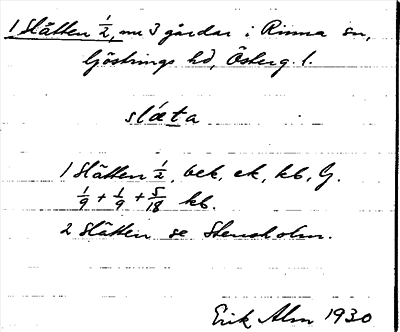 1 Slätten 1/2, nu 3 gårdar i Rinna sn,
Göstrings hd, Österg. l.
slæta
1 Slätten 1/2, ek, kb, G.
1/9 + 1/9 + 5/18 kb.
2 Slätten se Stensholm.
Erik Alm 1930